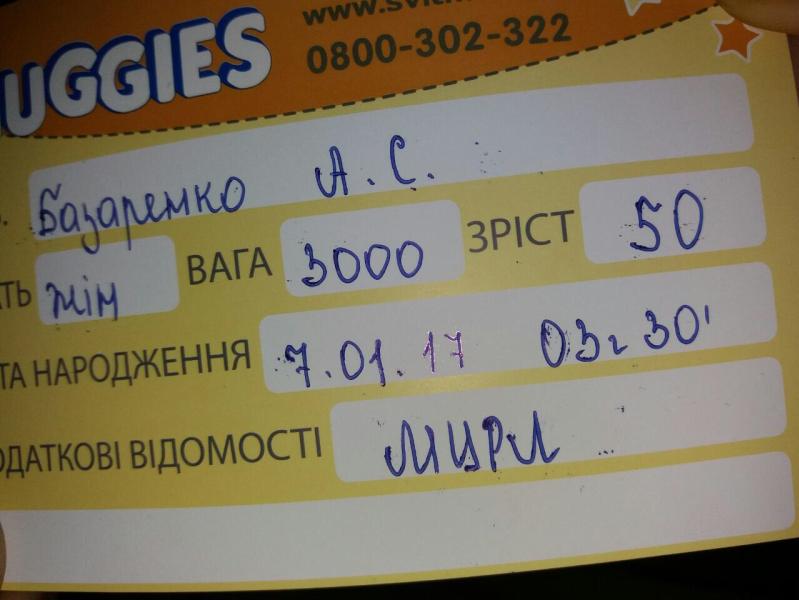 UGGIES
www.svit
0800-302-322
Базаремко А. С.
ТЬ жін ВАГА 3000 ЗРІСТ 50
ТА НАРОДЖЕННЯ 7.01.17 03г 30'
ОДАТКОВІ ВІДОМОСТІ МЦРЛ